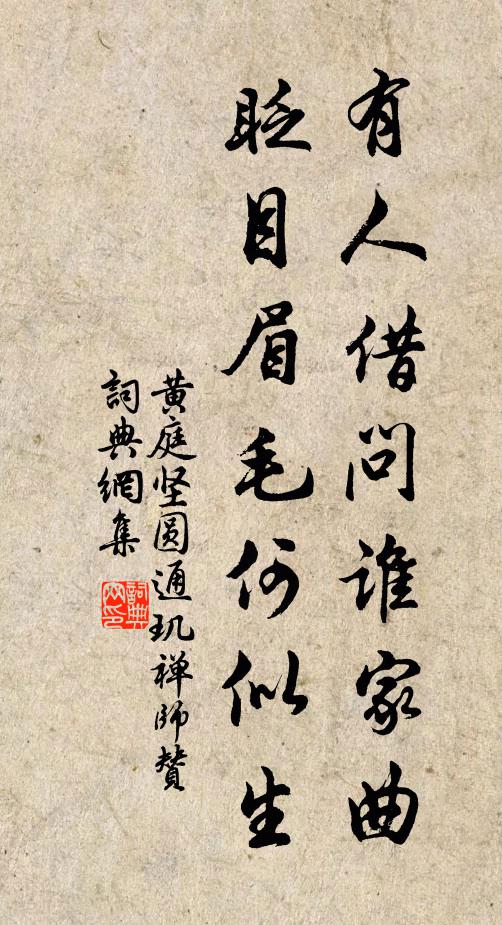 有人借问谁家曲
眨目眉毛何似生
黄庭坚圆通玑禅师赞
詞典網集
詞典
网印